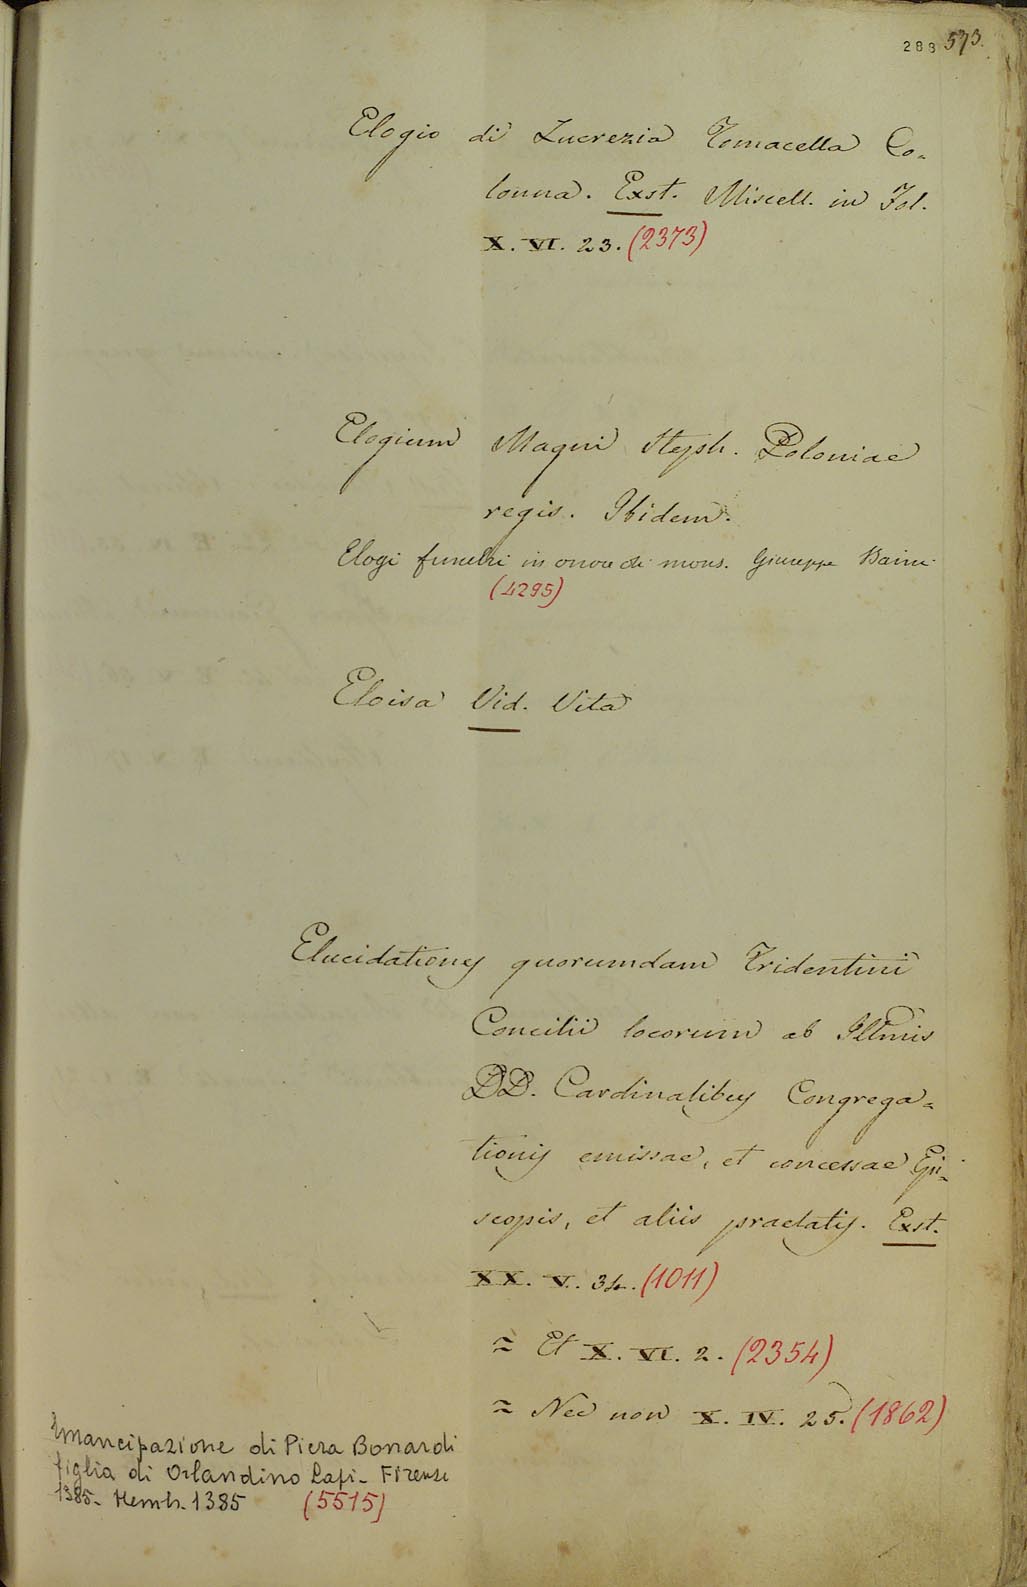 288 573.
Elogio di Lucrezia Tomacella Co=
lonna. Exst. Miscell. in Fol.
X. VI. 23. (2373)
Elogium Magni Steph. Poloniae
regis. Ibidem.
Elogi funebri in onore di mons. Giuseppe Baini
(4295)
Eloisa Vid. Vita
Elucidationes quorumdam Tridentini
Concilii locorum ab Illmis
DD. Cardinalibus Congrega=
tionis emissae, et concessae Epi=
scopis, et aliis praelatis. Exst.
XX. V. 34. (1011)
= Et X. VI. 2. (2354)
= Nec non X. IV. 25. (1862)
Emancipazione di Piera Bonardi
figlia di Orlandino Lapi - Firenze
1385 - Memb. 1385 (5515)